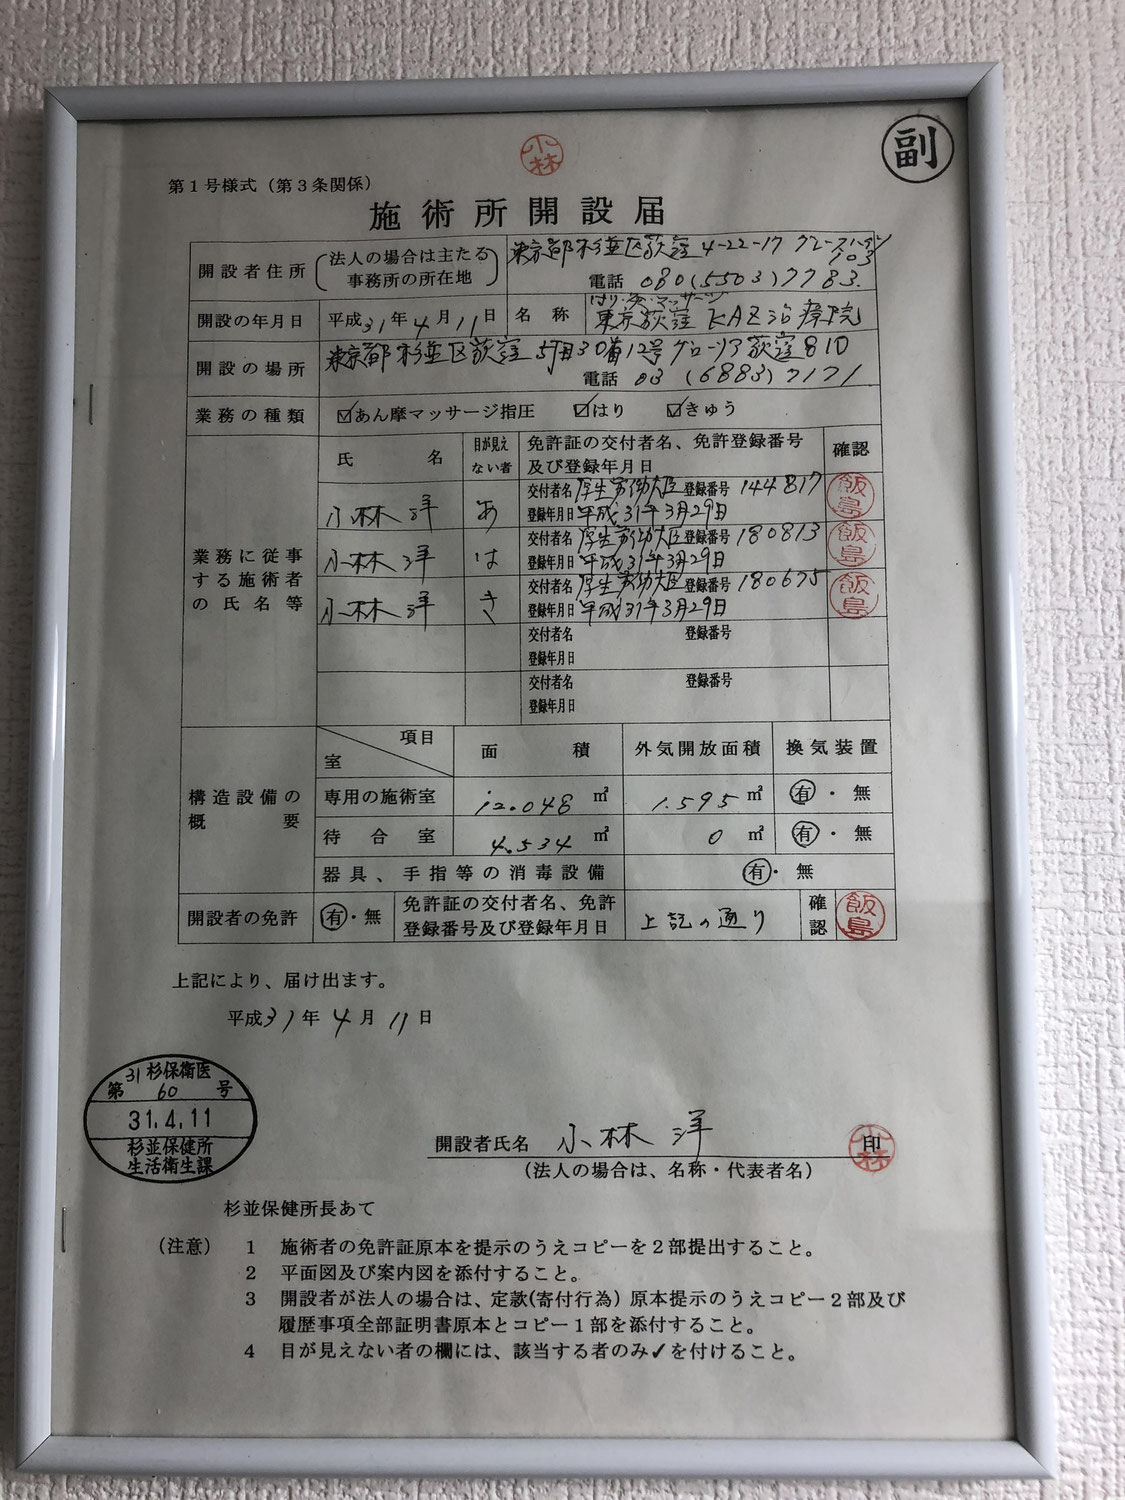 小林
副
第1号様式（第3条関係）
施術所開設届
開設者住所（法人の場合は主たる事務所の所在地） 東京都杉並区荻窪4-22-17 103
電話 080(5503)7783.
開設の年月日 平成31年4月11日 名称 はり・灸・マッサージ
東京荻窪KAZ治療院
開設の場所 東京都杉並区荻窪5丁目30番12号グローリア荻窪810
電話 03 (6883)7171.
業務の種類 ☑あん摩マッサージ指圧 ☑はり ☑きゅう
業務に従事する施術者の氏名等
氏名 目が見えない者 免許証の交付者名、免許登録番号及び登録年月日 確認
小林 洋 あ 交付者名 厚生労働大臣 登録番号 144817
登録年月日 平成31年3月29日 飯島
小林 洋 は 交付者名 厚生労働大臣 登録番号 180813
登録年月日 平成31年3月29日 飯島
小林 洋 き 交付者名 厚生労働大臣 登録番号 180675
登録年月日 平成31年3月29日 飯島
交付者名 登録番号
登録年月日
交付者名 登録番号
登録年月日
構造設備の概要
項目 室 面積 外気開放面積 換気装置
専用の施術室 12.048 ㎡ 1.595 ㎡ 有・無
待合室 4.534 ㎡ 0 ㎡ 有・無
器具、手指等の消毒設備 有・無
開設者の免許 有・無 免許証の交付者名、免許登録番号及び登録年月日 上記の通り 確認 飯島
上記により、届け出ます。
平成31年4月11日
31杉保衛医
第60号
31.4.11
杉並保健所
生活衛生課
開設者氏名 小林 洋 印 小林
（法人の場合は、名称・代表者名）
杉並保健所長あて
（注意） 1 施術者の免許証原本を提示のうえコピーを2部提出すること。
2 平面図及び案内図を添付すること。
3 開設者が法人の場合は、定款(寄付行為) 原本提示のうえコピー2部及び
履歴事項全部証明書原本とコピー1部を添付すること。
4 目が見えない者の欄には、該当する者のみ✓を付けること。